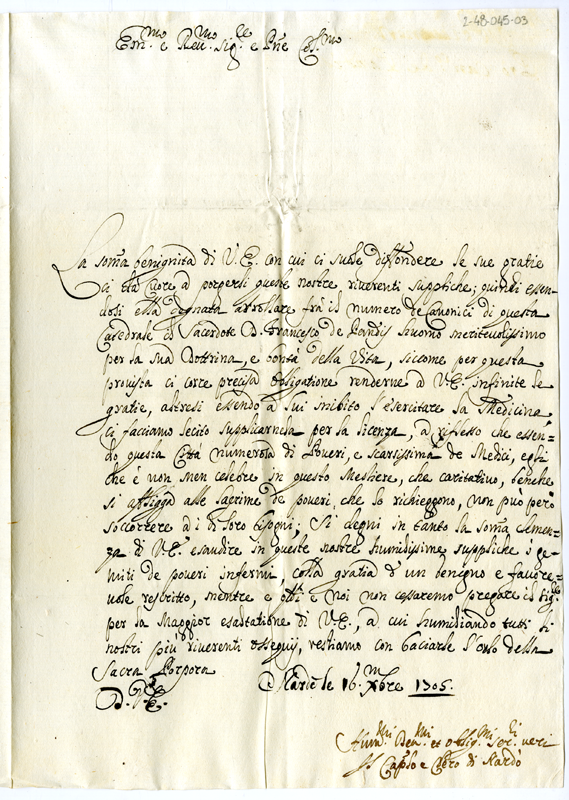 2-48-045-03
Em.mo e Reu.mo Sig.re e Pne Col.mo
La som̃a benignità di V.E. con cui ci suole diffondere le sue gratie
ci dà cuore a porgerli queste nostre riverenti suppliche; quindi essen-
dosi ella degnata arrollare frà il numero de Canonici di questa
Catedrale il Sacerdote D. Francesco de huomo meriteuolissimo
per la sua Dottrina, e bontà della Vita, siccome per questa
prouista ci corre precisa obligatione renderne à V.E. infinite le
gratie, altresi essendo a lui inibito l'esercitare la Medicina
ci facciamo lecito supplicarnela per la licenza, a riflesso che essen=
do questa Città numerosa di Poueri, e scarsissima de Medici, egli
che è non men celebre in questo Mestiere, che caritatiuo, benche
si affligga alle lacrime de poueri, che lo richieggono, non può però
soccorrere à i di loro bisogni; Si degni in tanto la som̃a Clemen-
za di V.E. esaudire in queste nostre humilissime suppliche i ge-
miti de poueri infermi, colla gratia d'un benigno e fauore=
uole rescritto, mentre e noi non cessaremo pregare il Sig.re
per la Maggior esaltatione di V.E., a cui humiliando tutti li
nostri più riuerenti ossequij, restiamo con baciarle l'orlo della
Sacra Porpora
D. V.E. Nardò le 16. Xbre 1705.
Hum.mi Deu.mi et oblig.mi ser.ri veri
Il Cap.lo e Clero di Nardò